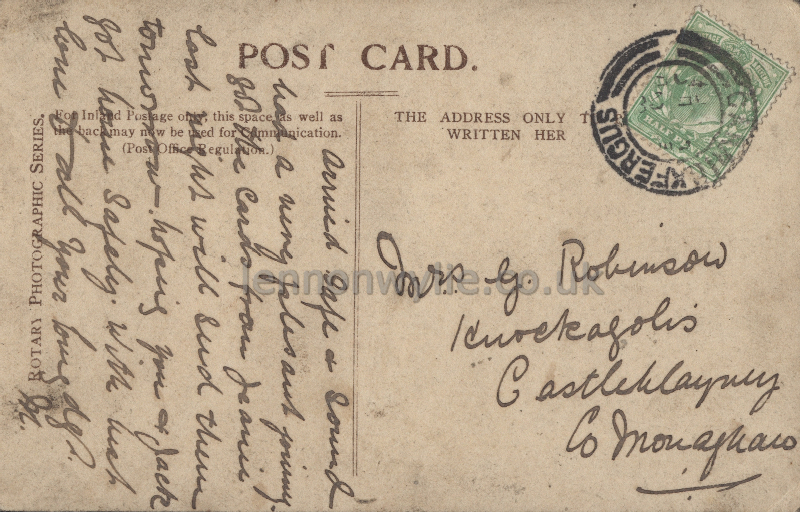 POST CARD.
For Inland Postage only, this space, as well as
the back may now be used for Communication.
(Post Office Regulation.)
THE ADDRESS ONLY T
WRITTEN HER
ROTARY PHOTOGRAPHIC SERIES.
FERGUS
HALF
Mrs. G. Robinson
Knockagolis
Castleblayney
Co Monaghan
Arrived safe & sound
had a very plesant journey.
got the cards from Jeannie
last night will send them
tomorrow. hoping you & Jack
got home safely. with best
love to all your loving dg.
M.
lennonwylie.co.uk